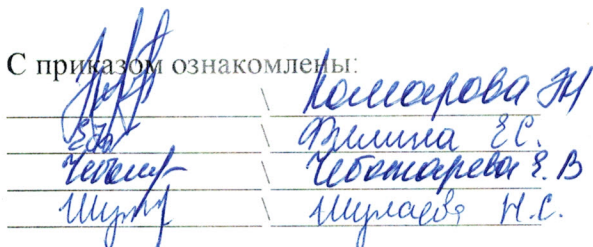 С приказом ознакомлены:
\ Комарова ЭН
\ Филина Е.С.
\ Чеботарева Е.В
\ Шулаева Н.С.